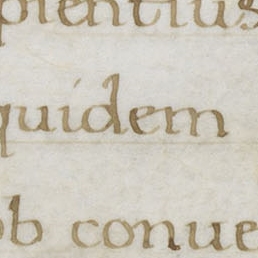 pientius
quidem
ob conue